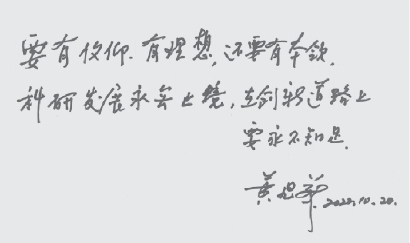 要有信仰、有理想,还要有本领,
科研发展永无止境,在创新道路上
要永不知足.
黄旭华 2020.10.20.